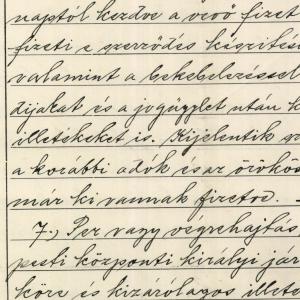 naptól kezdve a vevő fizet
fizeti e szerződés kiszitési
valamint a bekebelezéssel
dijakat és a jogügylet után k
illetékeket is. Kijelentik
a korábbi adók és az örökös
már ki vannak fizetve. –
7., Per vagy végrehajtás
pesti központi királyi jár
köre és kizárólagos illeté